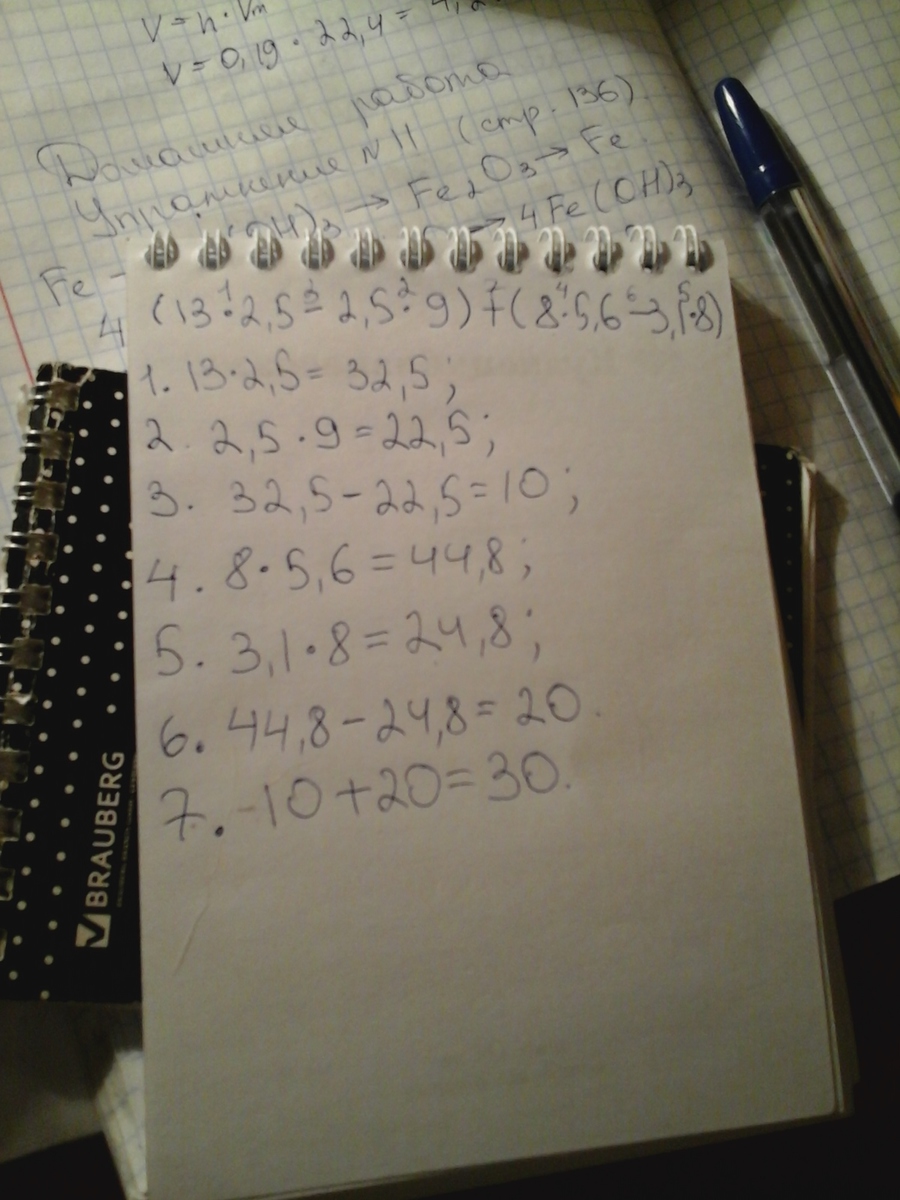 V = n · Vm
V = 0,19 · 22,4 = 4,2
Домашняя работа
Упражнение №11 (стр. 136).
(OH)3 → Fe2O3 → Fe.
→ 4Fe(OH)3
Fe
4
(13 · 2,5 - 2,5 · 9) + (8 · 5,6 - 3,1 · 8)
1. 13 · 2,5 = 32,5;
2. 2,5 · 9 = 22,5;
3. 32,5 - 22,5 = 10;
4. 8 · 5,6 = 44,8;
5. 3,1 · 8 = 24,8;
6. 44,8 - 24,8 = 20.
7. 10 + 20 = 30.
BRAUBERG